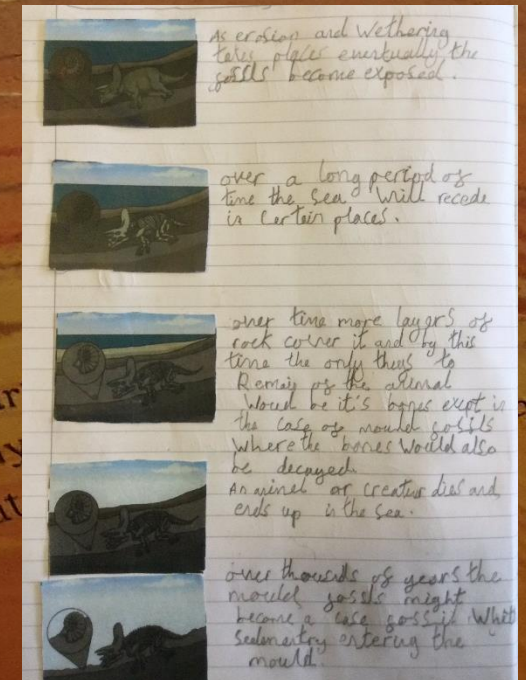 As erosion and Wethering
takes places eventually the
fossils become exposed.
over a long period of
time the sea will recede
in certain places.
over time more layers of
rock cover it and by this
time the only thing to
Remain of the animal
Would be it's bones exept in
the case of mould fossils
Where the bones Would also
be decayed.
An or creatur dies and
ends up in the sea.
over thouilds of years the
mould fossils might
become a case fossil
entering the
mould